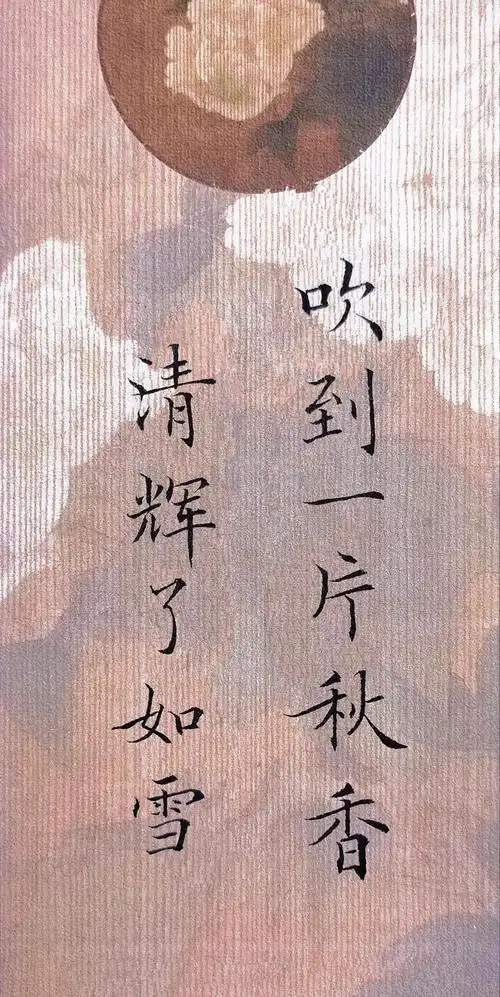 吹到一片秋香
清辉了如雪